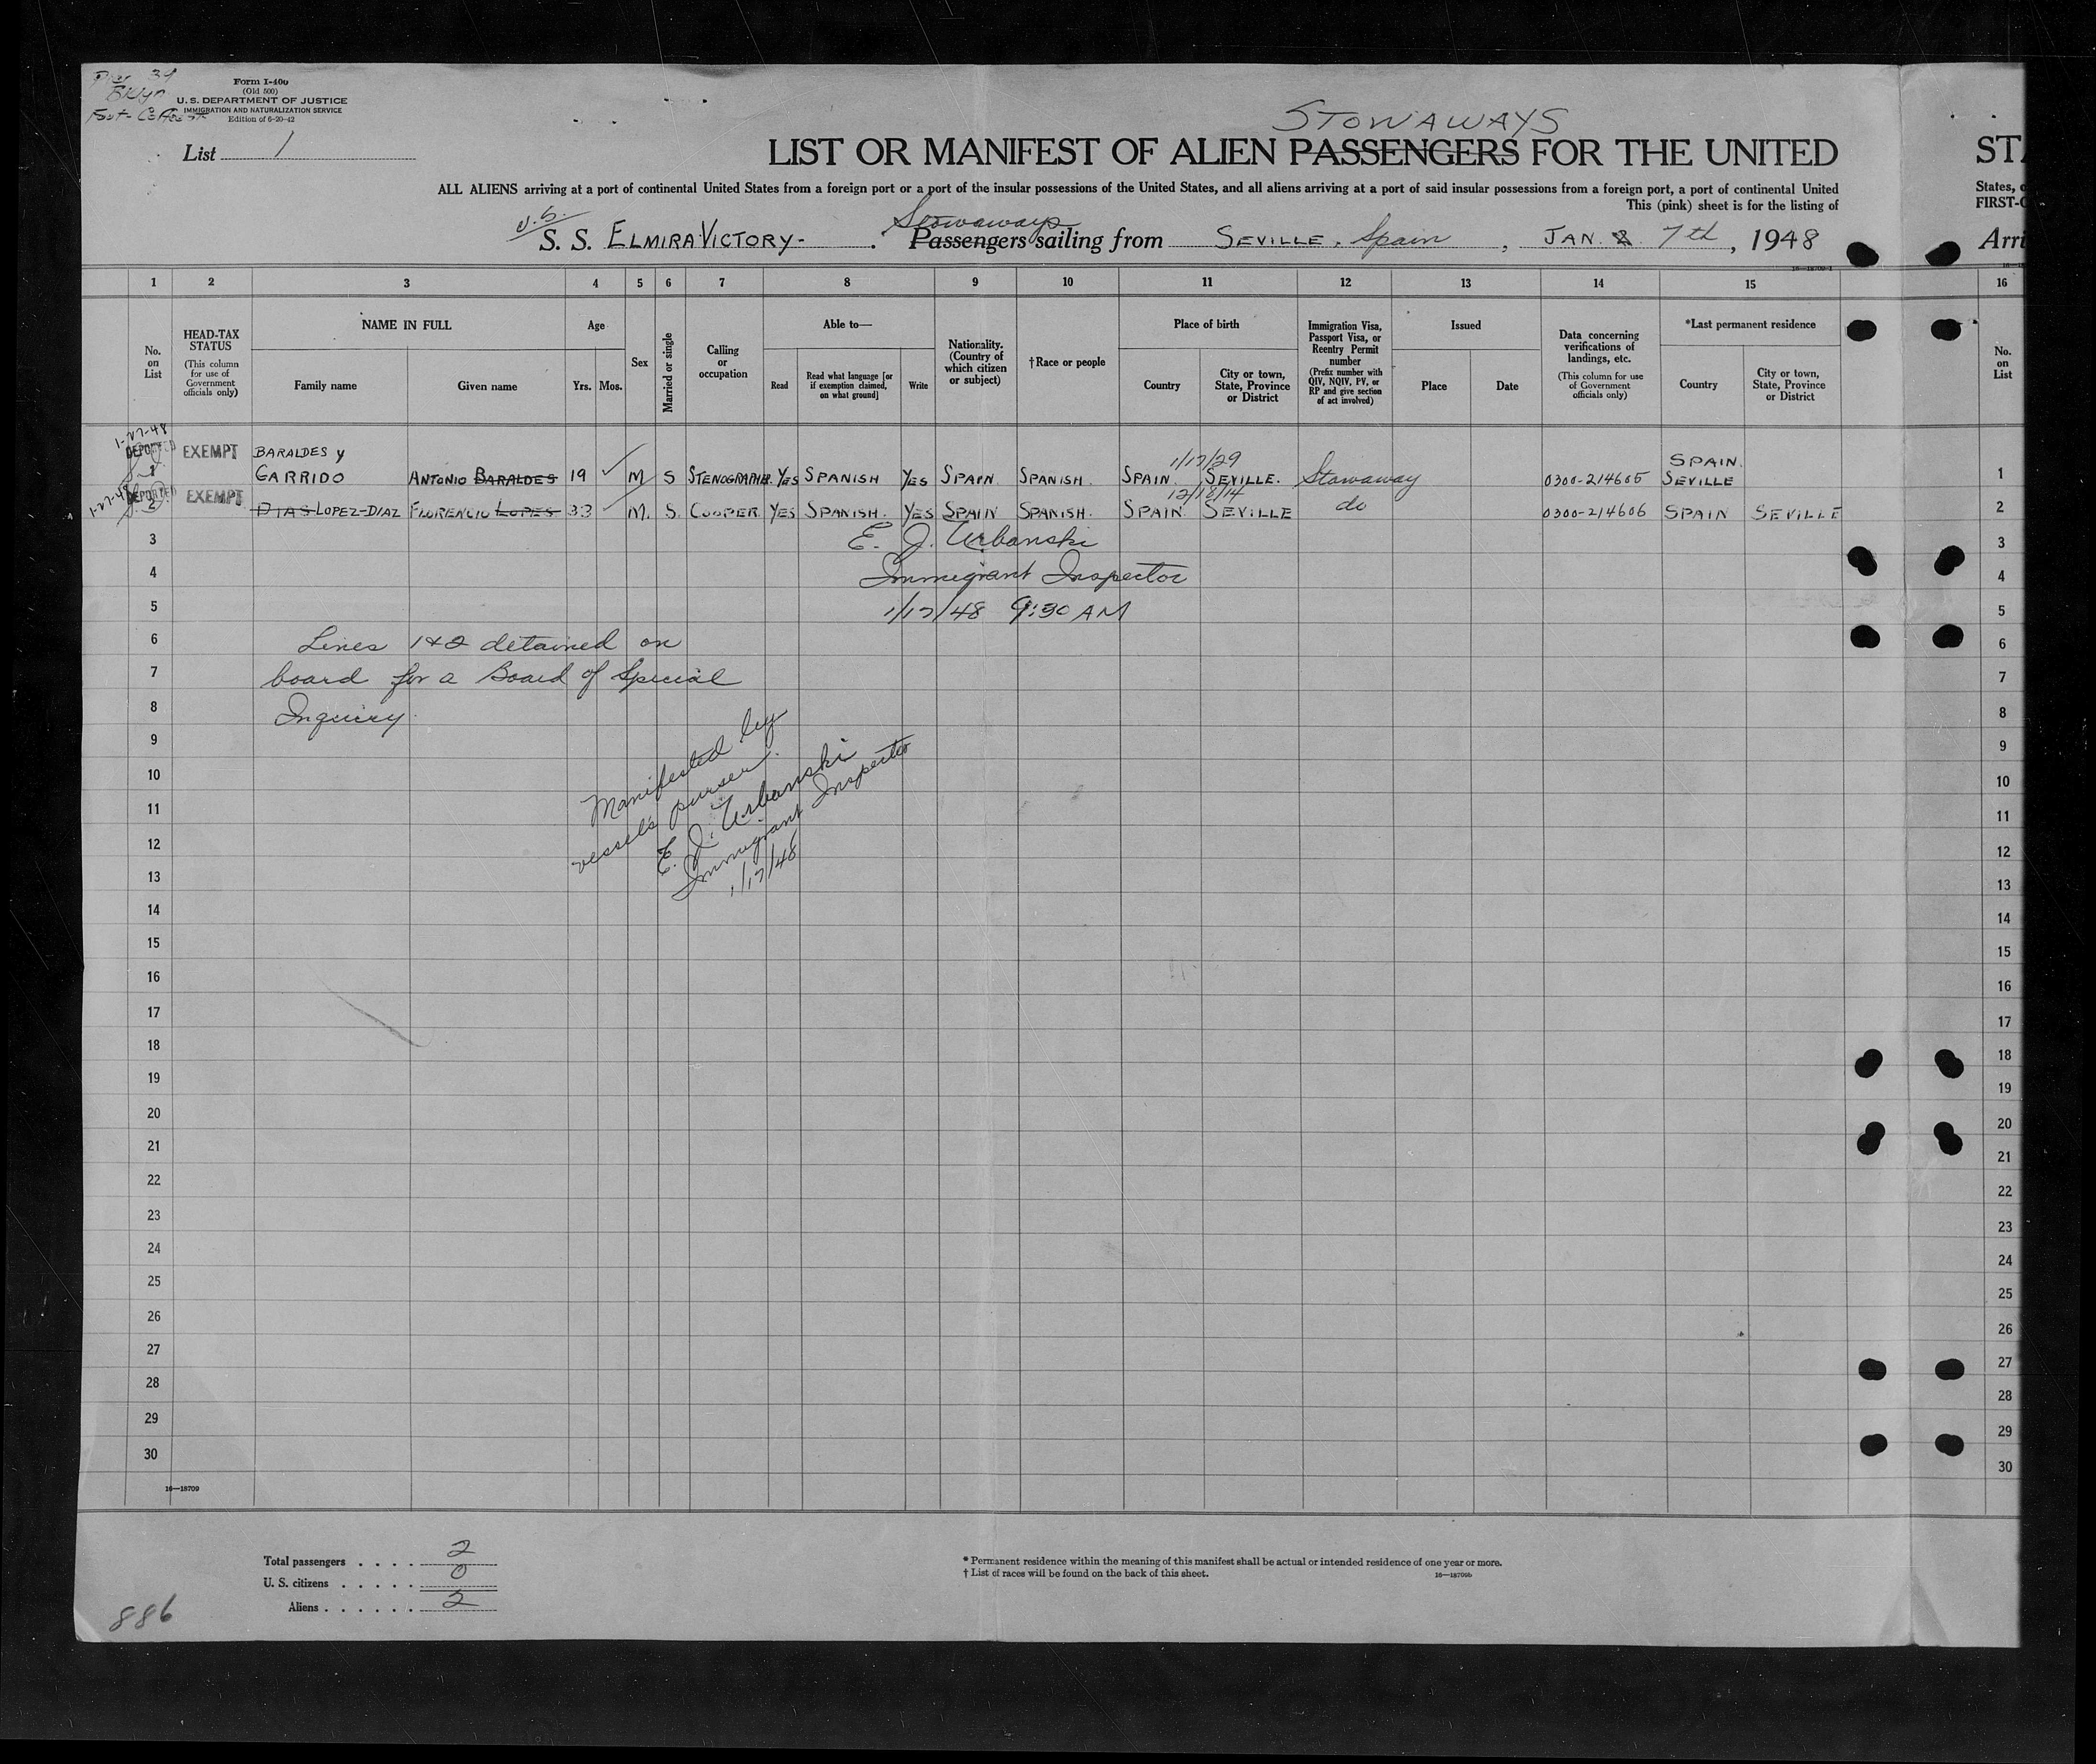 Pier 39
Bklyn
Form I-400
(Old 500)
U. S. DEPARTMENT OF JUSTICE
IMMIGRATION AND NATURALIZATION SERVICE
Edition of 6-20-42
List 1
STOWAWAYS
LIST OR MANIFEST OF ALIEN PASSENGERS FOR THE UNITED
STA
ALL ALIENS arriving at a port of continental United States from a foreign port or a port of the insular possessions of the United States, and all aliens arriving at a port of said insular possessions from a foreign port, a port of continental United
States, o
This (pink) sheet is for the listing of
FIRST-C
U.S. Stowaways
S. S. ELMIRA VICTORY- . Passengers sailing from SEVILLE, Spain , JAN. 2 7th , 1948
Arri
16—18709-1
1 2 3 4 5 6 7 8 9 10 11 12 13 14 15 16
No. on List
HEAD-TAX STATUS
(This column for use of Government officials only)
NAME IN FULL
Family name
Given name
Age
Yrs. Mos.
Sex
Married or single
Calling or occupation
Able to—
Read
Read what language [or if exemption claimed, on what ground]
Write
Nationality. (Country of which citizen or subject)
†Race or people
Place of birth
Country
City or town, State, Province or District
Immigration Visa, Passport Visa, or Reentry Permit number
(Prefix number with QIV, NQIV, PV, or RP and give section of act involved)
Issued
Place
Date
Data concerning verifications of landings, etc.
(This column for use of Government officials only)
*Last permanent residence
Country
City or town, State, Province or District
No. on List
1-27-48
DEPORTED EXEMPT BARALDES y 1/17/29 SPAIN.
1 GARRIDO ANTONIO BARALDES 19 M S STENOGRAPHER YES SPANISH YES SPAIN SPANISH. SPAIN. SEVILLE. Stowaway 0300-214605 SEVILLE 1
1-27-48 DEPORTED EXEMPT 12/18/14
2 DIAS LOPEZ-DIAZ FLORENCIO LOPES 33 M. S. COOPER YES SPANISH. YES SPAIN SPANISH. SPAIN SEVILLE do 0300-214606 SPAIN SEVILLE 2
3 E. J. Urbanski 3
4 Immigrant Inspector 4
5 1/17/48 9:30 AM 5
6 Lines 1&2 detained on 6
7 board for a Board of Special 7
8 Inquiry. 8
9 9
10 10
11 11
12 12
13 13
Manifested by
vessel's purser.
E. J. Urbanski
Immigrant Inspector
1/17/48
14 14
15 15
16 16
17 17
18 18
19 19
20 20
21 21
22 22
23 23
24 24
25 25
26 26
27 27
28 28
29 29
30 30
16—18709
Total passengers . . . . 2
U. S. citizens . . . . . 0
Aliens . . . . . . 2
* Permanent residence within the meaning of this manifest shall be actual or intended residence of one year or more.
† List of races will be found on the back of this sheet.
16—18709b
886